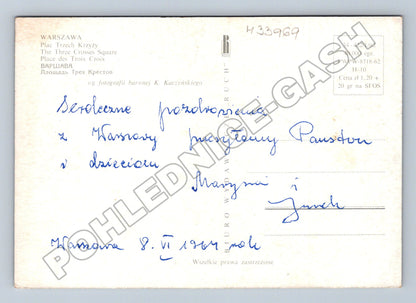 433969
WARSZAWA
Plac Trzech Krzyży
The Three Crosses Square
Place des Trois Croix
ВАРШАВА
Площадь Трех Крестов
wg fotografii barwnej K. Kaczyńskiego
Cena zł 1,20 +
20 gr na SFOS
Serdeczne pozdrowienia
z Warszawy przesyłamy Państwu
z dziećmi
Marysia i
Jurek
Warszawa 8. VI 1964 rok
BIURO WYDAWNICZE "RUCH"
Wszelkie prawa zastrzeżone
POHLEDNICE-GASH